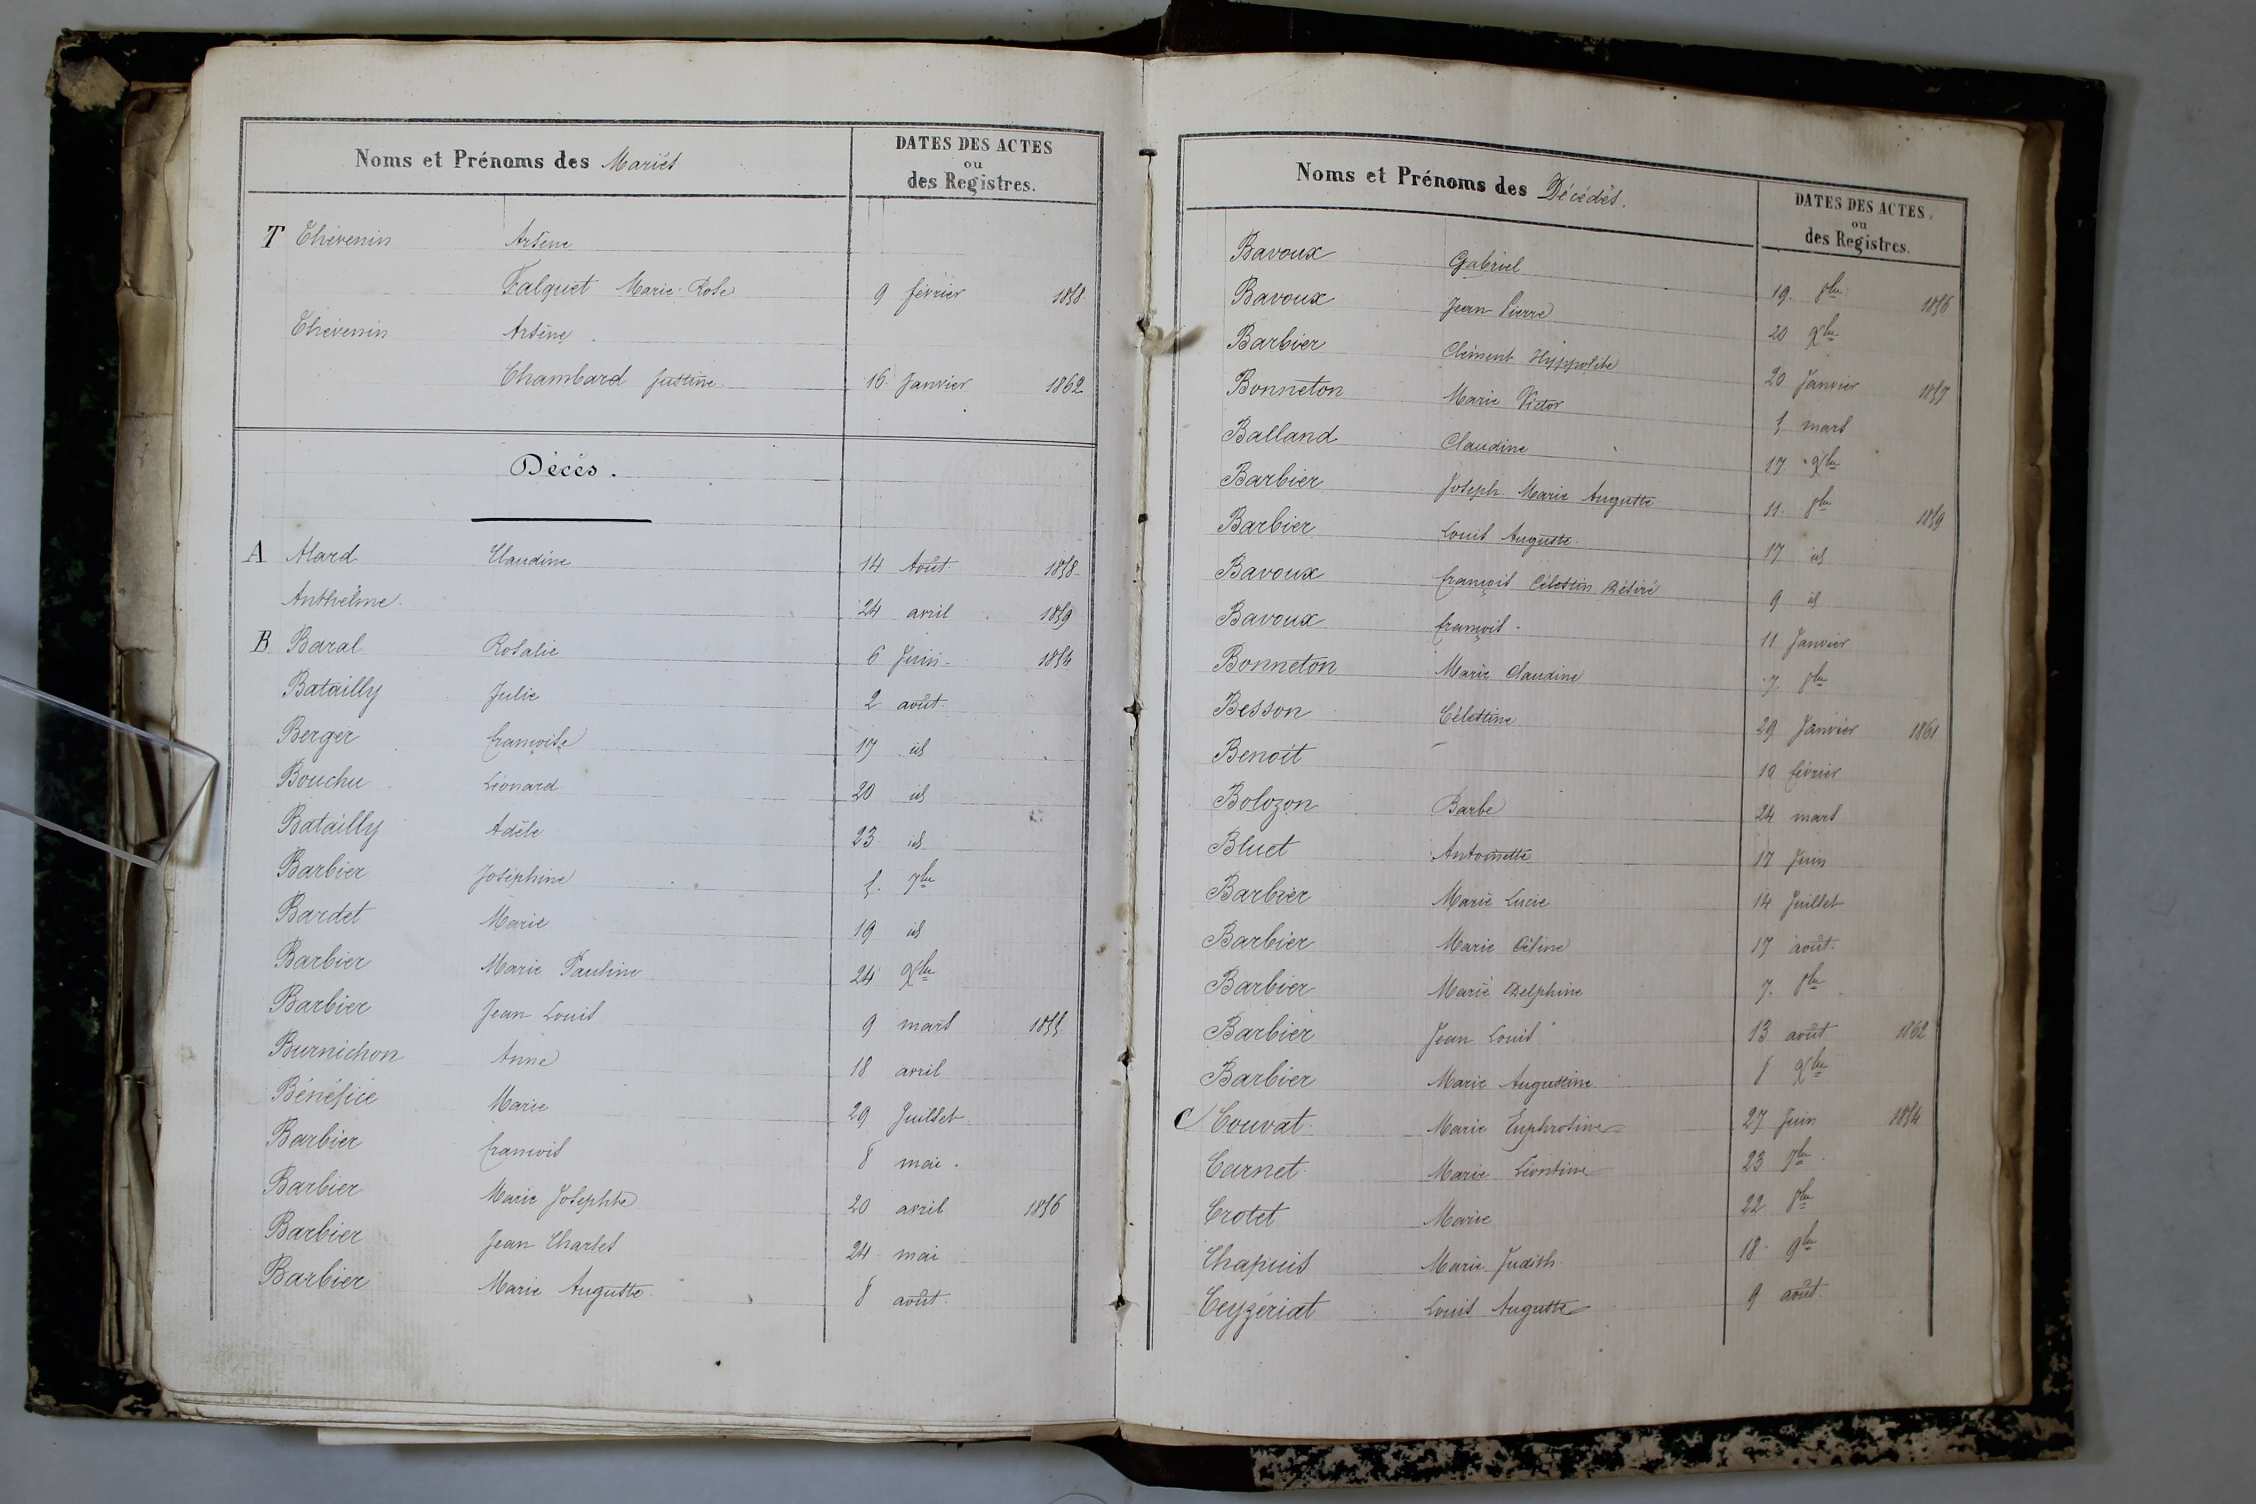 Noms et Prénoms des Mariés
DATES DES ACTES
ou
des Registres.
T Thévenin Arsène
Falquet Marie-Rose 9 février 1858
Thévenin Arsène
Chambard Justine 16 Janvier 1862
Décès.
A Alard Claudine 14 Août 1858
Anthelme 24 avril 1859
B Baral Rosalie 6 Juin 1854
Batailly Julie 2 août
Berger françoise 17 id
Bouchu Léonard 20 id
Batailly Adèle 23 id
Barbier Joséphine 5 7bre
Bardet Marie 19 id
Barbier Marie Pauline 24 Xbre
Barbier Jean Louis 9 mars 1855
Burnichon Anne 18 avril
Bénéfice Marie 29 Juillet
Barbier françois 8 mai
Barbier Marie Josephte 20 avril 1856
Barbier Jean Charles 24 mai
Barbier Marie Auguste 8 août
Noms et Prénoms des Décédés.
DATES DES ACTES
ou
des Registres.
Bavoux Gabriel 19 8bre 1856
Bavoux Jean Pierre 20 Xbre
Barbier Clément Hyppolite 20 Janvier 1857
Bonneton Marie Victor 5 mars
Balland Claudine 17 Xbre
Barbier Joseph Marie Auguste 11 8bre 1859
Barbier Louis Auguste 17 id
Bavoux françois Célestin Désiré 9 id
Bavoux françois 11 Janvier
Bonneton Marie Claudine 7 8bre
Besson Célestine 29 Janvier 1861
Benoît 10 février
Bolozon Barbe 24 mars
Bluet Antoinette 17 Juin
Barbier Marie Lucie 14 Juillet
Barbier Marie Céline 17 août
Barbier Marie Delphine 7 8bre
Barbier Jean Louis 13 août 1862
Barbier Marie Augustine 8 Xbre
C Couvat Marie Euphrosine 27 Juin 1854
Carnet Marie Léontine 23 7bre
Crotet Marie 22 8bre
Chapuis Marie Judith 18 9bre
Ceyzériat Louis Auguste 9 août